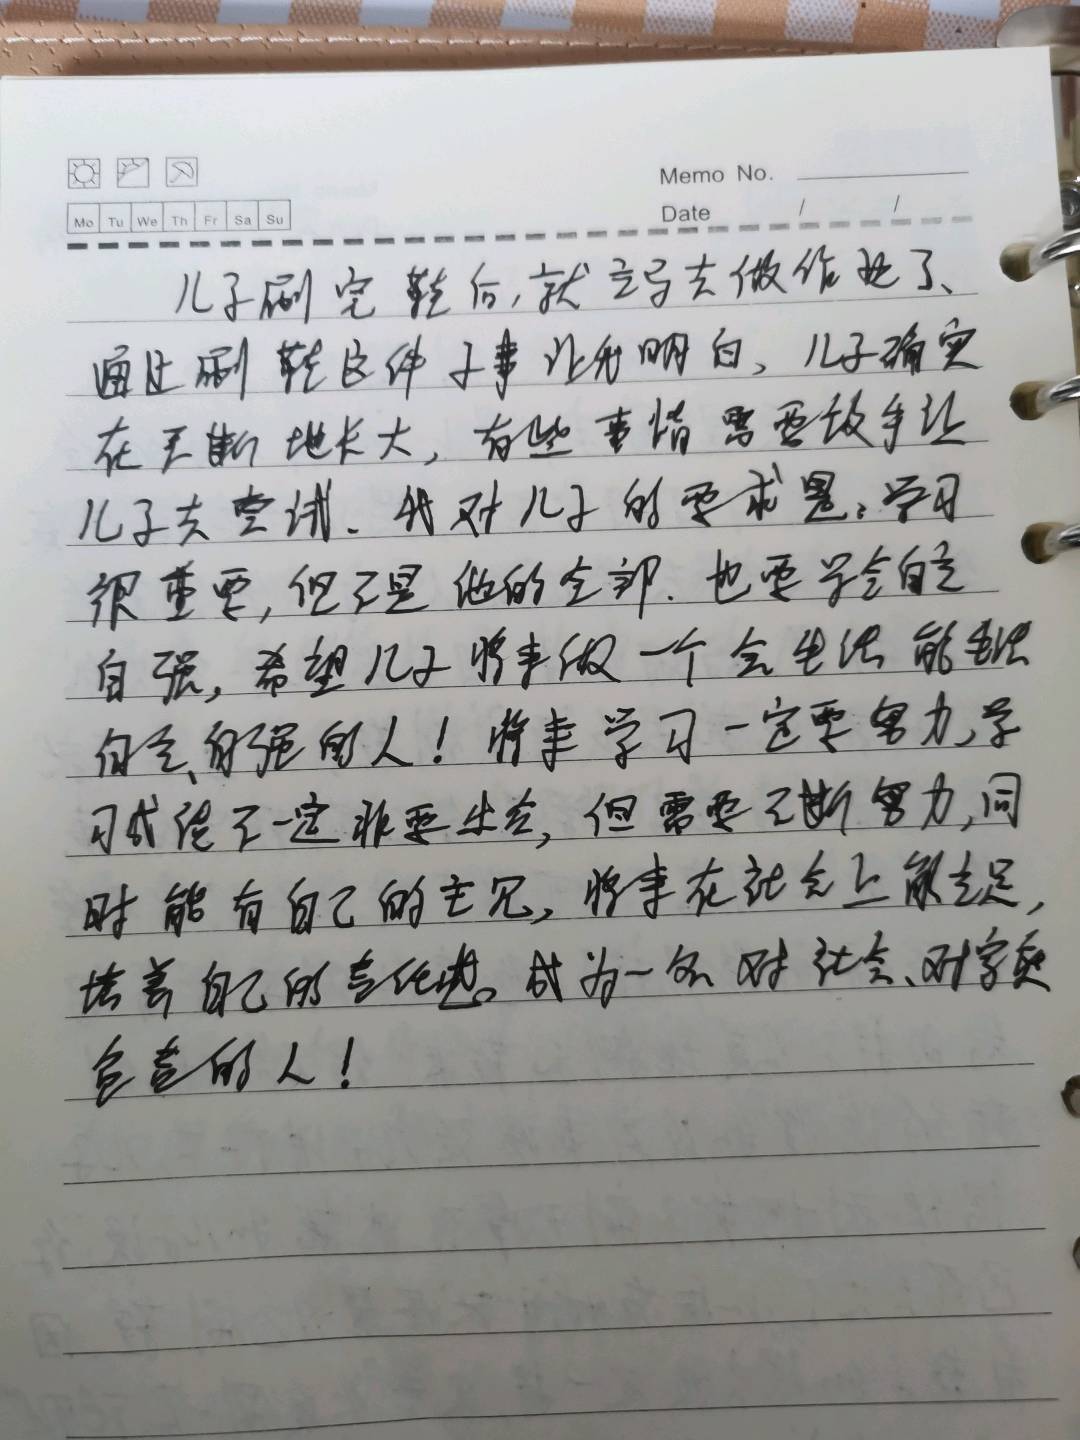 Memo No.
Mo Tu We Th Fr Sa Su
Date / /
儿子刷完鞋后,就立马去做作业了、
通过刷鞋这件子事让我明白、儿子确实
在不断地长大,有些事情需要放手让
儿子去尝试、我对儿子的要求是:学习
很重要,但不是他的全部.也要学会自立
自强,希望儿子将来做一个会生活能生活
自立、自强的人!将来学习一定要努力,学
习成绩不一定非要出众,但需要不断努力,同
时能有自己的主见,将来在社会上能立足,
培养自己的责任感。成为一名对社会、对家庭
负责的人!